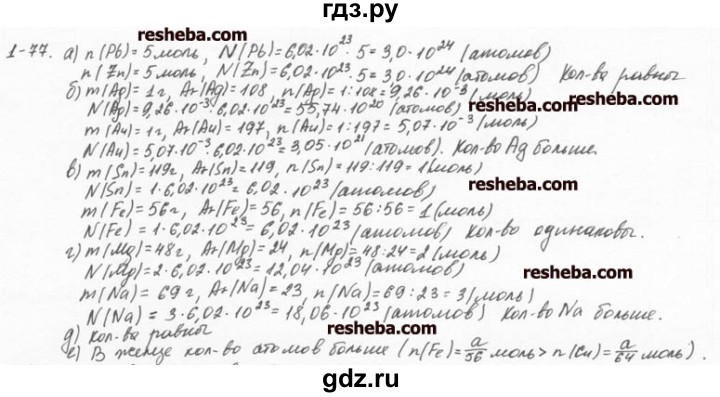 гдз.ру
resheba.com
1-77. а) n(Pb) = 5 моль, N(Pb) = 6,02·10²³·5 = 3,0·10²⁴ (атомов)
n(Zn) = 5 моль, N(Zn) = 6,02·10²³·5 = 3,0·10²⁴ (атомов) Кол-ва равны
б) m(Ag) = 1 г, Ar(Ag) = 108, n(Ag) = 1:108 = 9,26·10⁻³ (моль)
N(Ag) = 9,26·10⁻³·6,02·10²³ = 55,74·10²⁰ (атомов)
m(Au) = 1 г, Ar(Au) = 197, n(Au) = 1:197 = 5,07·10⁻³ (моль)
N(Au) = 5,07·10⁻³·6,02·10²³ = 3,05·10²¹ (атомов). Кол-во Ag больше.
resheba.com
в) m(Sn) = 119 г, Ar(Sn) = 119, n(Sn) = 119:119 = 1 (моль)
N(Sn) = 1·6,02·10²³ = 6,02·10²³ (атомов)
resheba.com
m(Fe) = 56 г, Ar(Fe) = 56, n(Fe) = 56:56 = 1 (моль)
N(Fe) = 1·6,02·10²³ = 6,02·10²³ (атомов) Кол-во одинаковы.
г) m(Mg) = 48 г, Ar(Mg) = 24, n(Mg) = 48:24 = 2 (моль)
N(Mg) = 2·6,02·10²³ = 12,04·10²³ (атомов)
resheba.com
m(Na) = 69 г, Ar(Na) = 23, n(Na) = 69:23 = 3 (моль)
N(Na) = 3·6,02·10²³ = 18,06·10²³ (атомов) Кол-во Na больше.
resheba.com
д) Кол-ва равны
е) В железе кол-во атомов больше (n(Fe) = a/56 моль > n(Cu) = a/64 моль).
resheba.com
gdz.ru